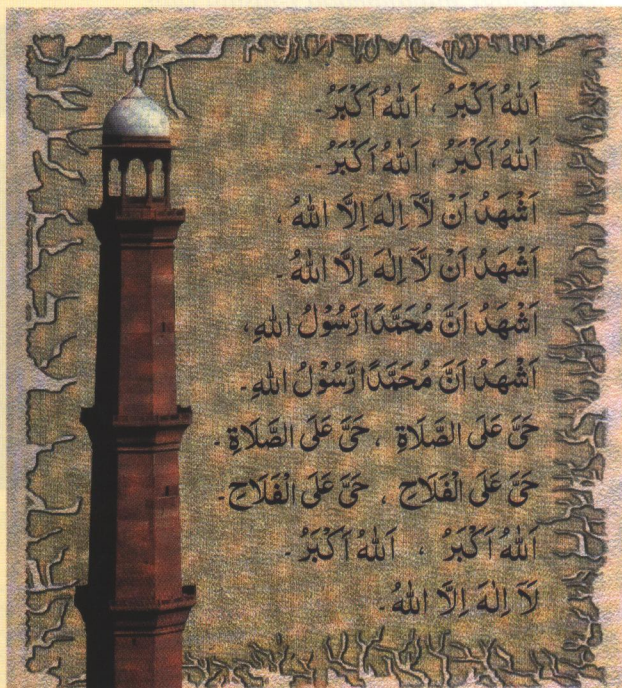 اَللّٰهُ اَكْبَرُ ، اَللّٰهُ اَكْبَرُ ـ
اَللّٰهُ اَكْبَرُ ، اَللّٰهُ اَكْبَرُ ـ
اَشْهَدُ اَنْ لَّآ اِلٰهَ اِلَّا اللّٰهُ ،
اَشْهَدُ اَنْ لَّآ اِلٰهَ اِلَّا اللّٰهُ ـ
اَشْهَدُ اَنَّ مُحَمَّدًا رَّسُوْلُ اللّٰهِ ،
اَشْهَدُ اَنَّ مُحَمَّدًا رَّسُوْلُ اللّٰهِ ـ
حَیَّ عَلَی الصَّلَاةِ ، حَیَّ عَلَی الصَّلَاةِ ـ
حَیَّ عَلَی الْفَلَاحِ ، حَیَّ عَلَی الْفَلَاحِ ـ
اَللّٰهُ اَكْبَرُ ، اَللّٰهُ اَكْبَرُ ـ
لَآ اِلٰهَ اِلَّا اللّٰهُ ـ